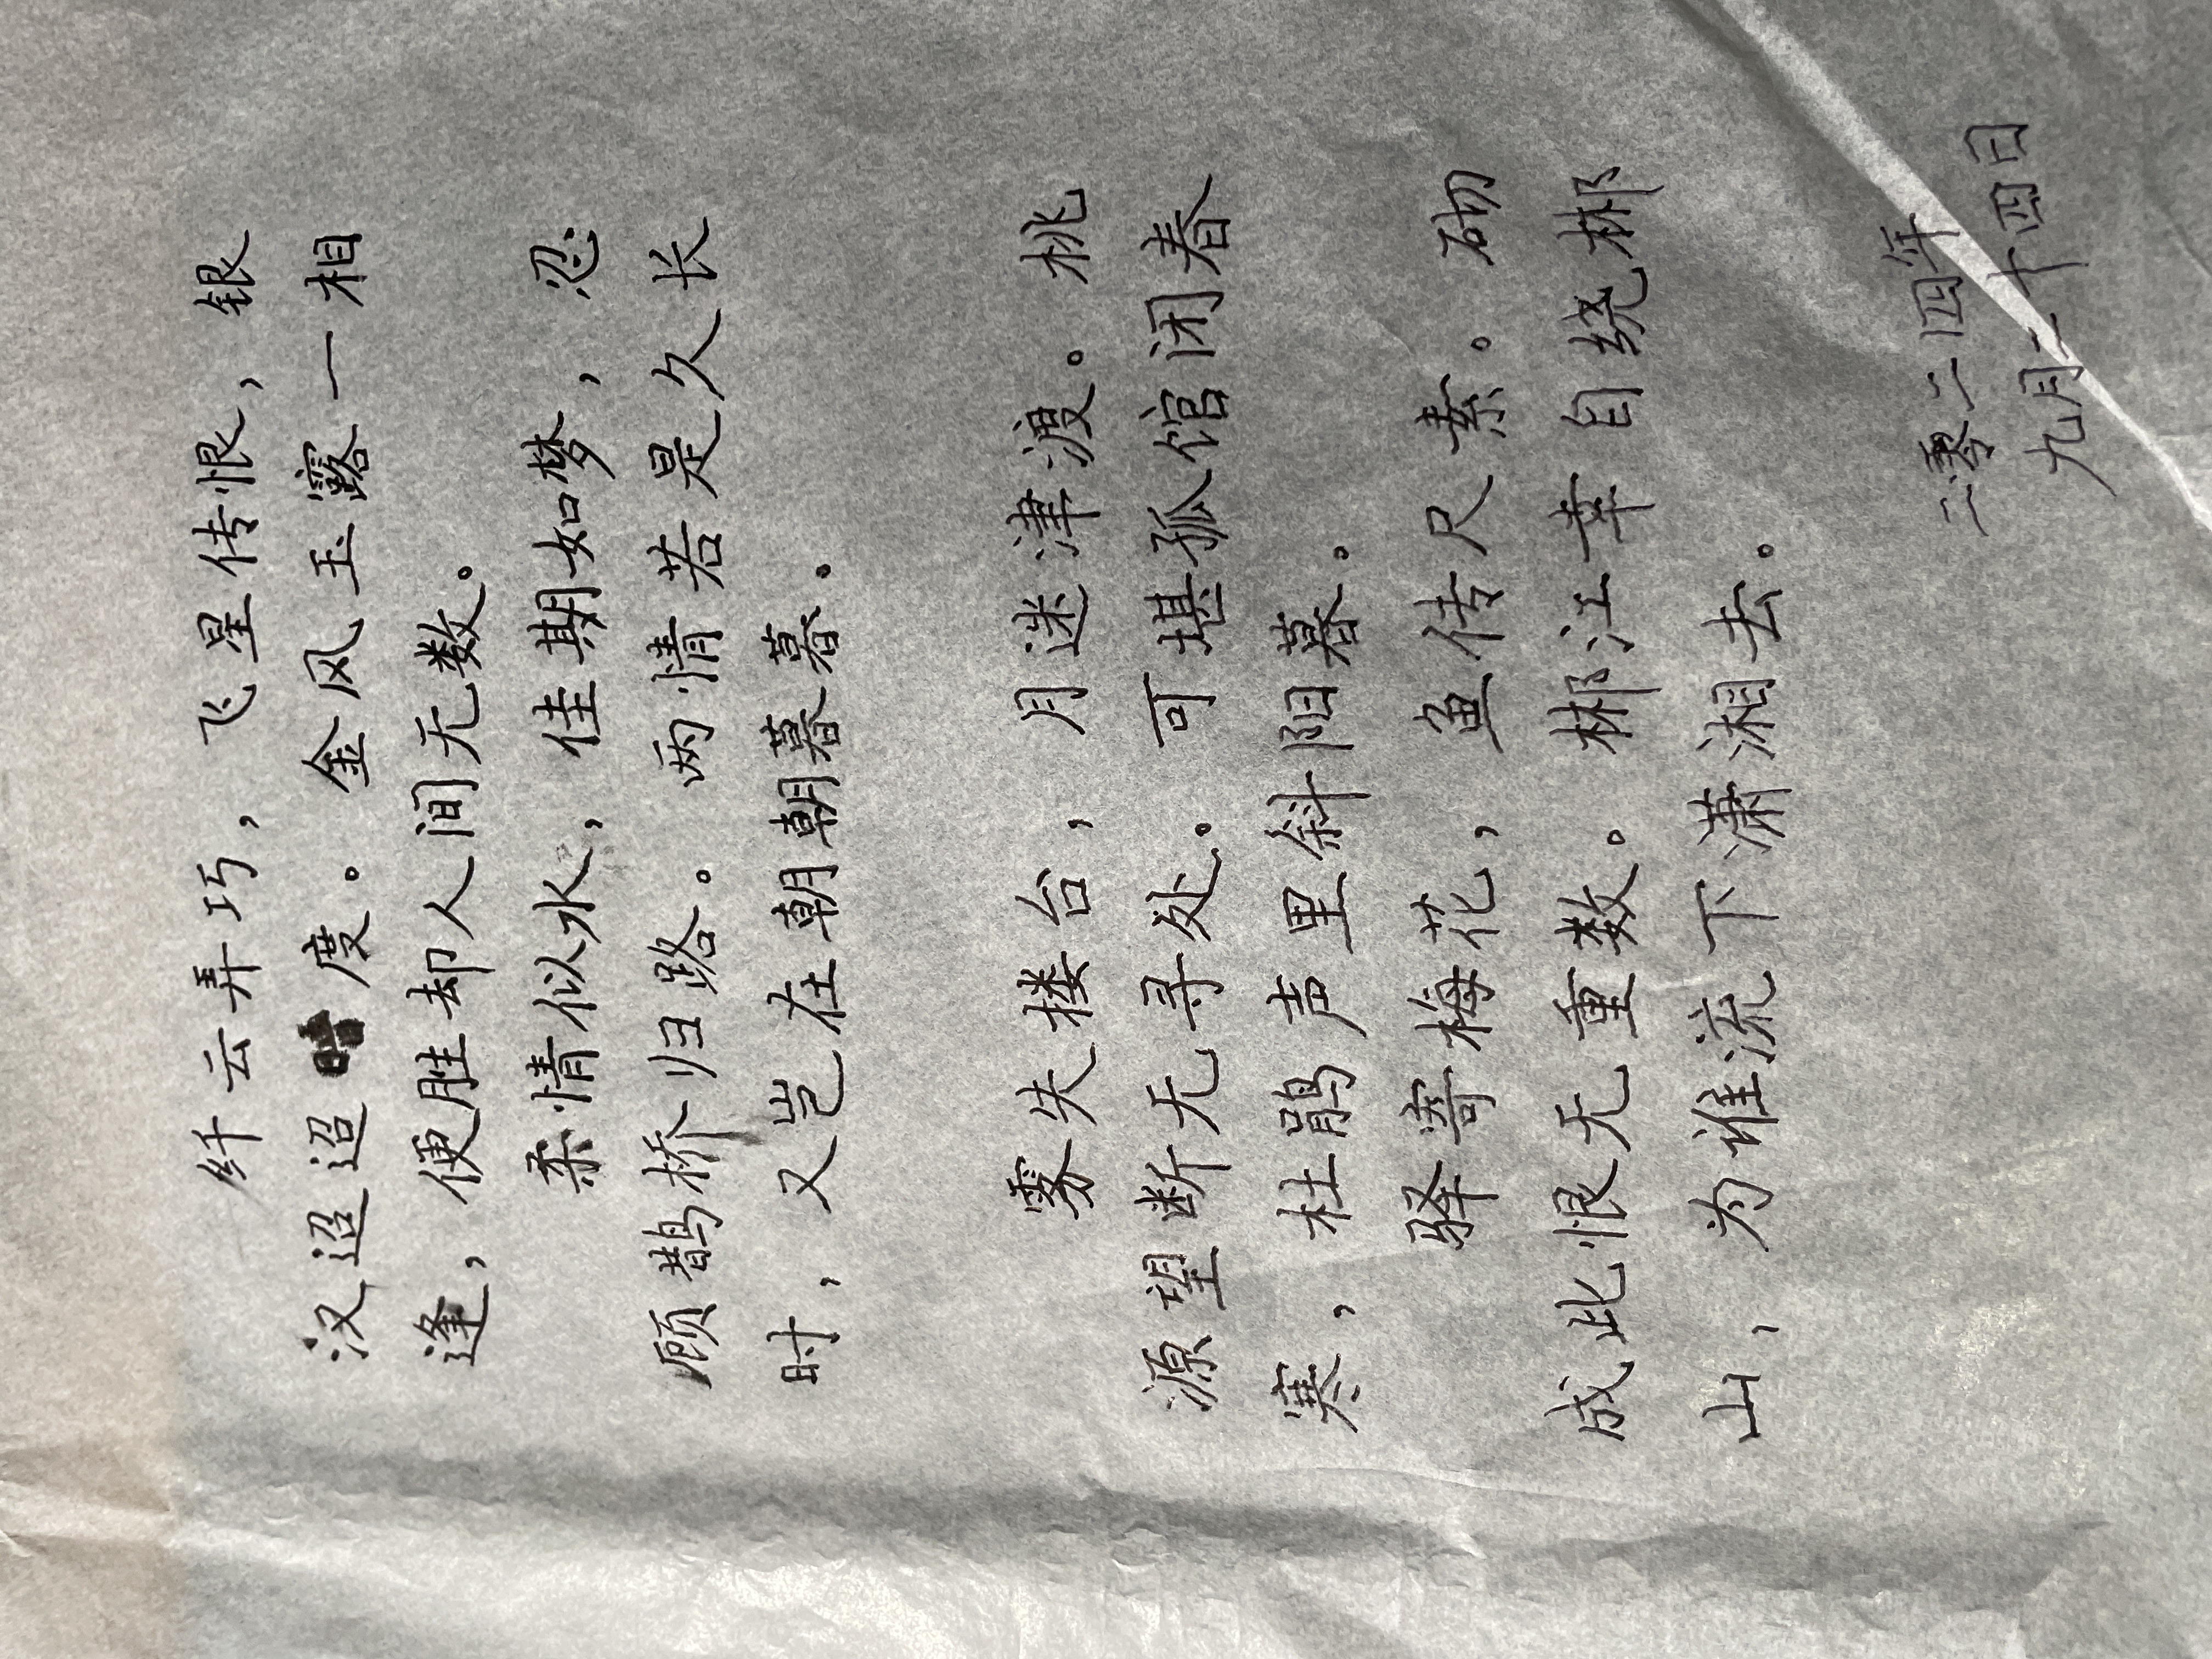 纤云弄巧，飞星传恨，银
汉迢迢暗度。金风玉露一相
逢，便胜却人间无数。
柔情似水，佳期如梦，忍
顾鹊桥归路。两情若是久长
时，又岂在朝朝暮暮。
雾失楼台，月迷津渡。桃
源望断无寻处。可堪孤馆闭春
寒，杜鹃声里斜阳暮。
驿寄梅花，鱼传尺素。砌
成此恨无重数。郴江幸自绕郴
山，为谁流下潇湘去。
二零二四年
九月二十四日